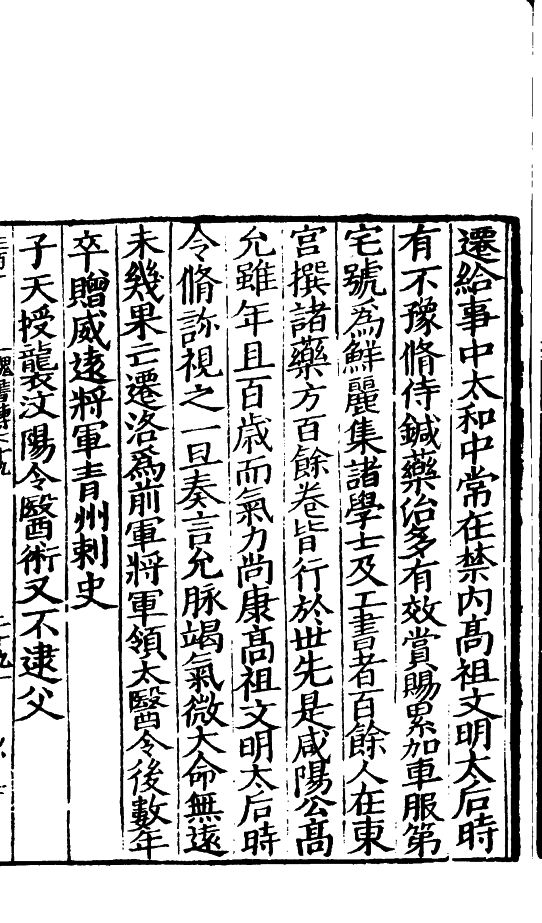 遷給事中太和中常在禁内髙祖文明太后時
有不豫脩侍鍼藥治多有效賞賜累加車服第
宅號爲鮮麗集諸學士及工書者百餘人在東
宫撰諸藥方百餘卷皆行於世先是咸陽公髙
允雖年且百歲而氣力尚康髙祖文明太后時
令脩診視之一旦奏言允脉竭氣微大命無遠
未幾果亡遷洛爲前軍將軍領太醫令後數年
卒贈威遠將軍青州刺史
子天授襲汶陽令醫術又不逮父